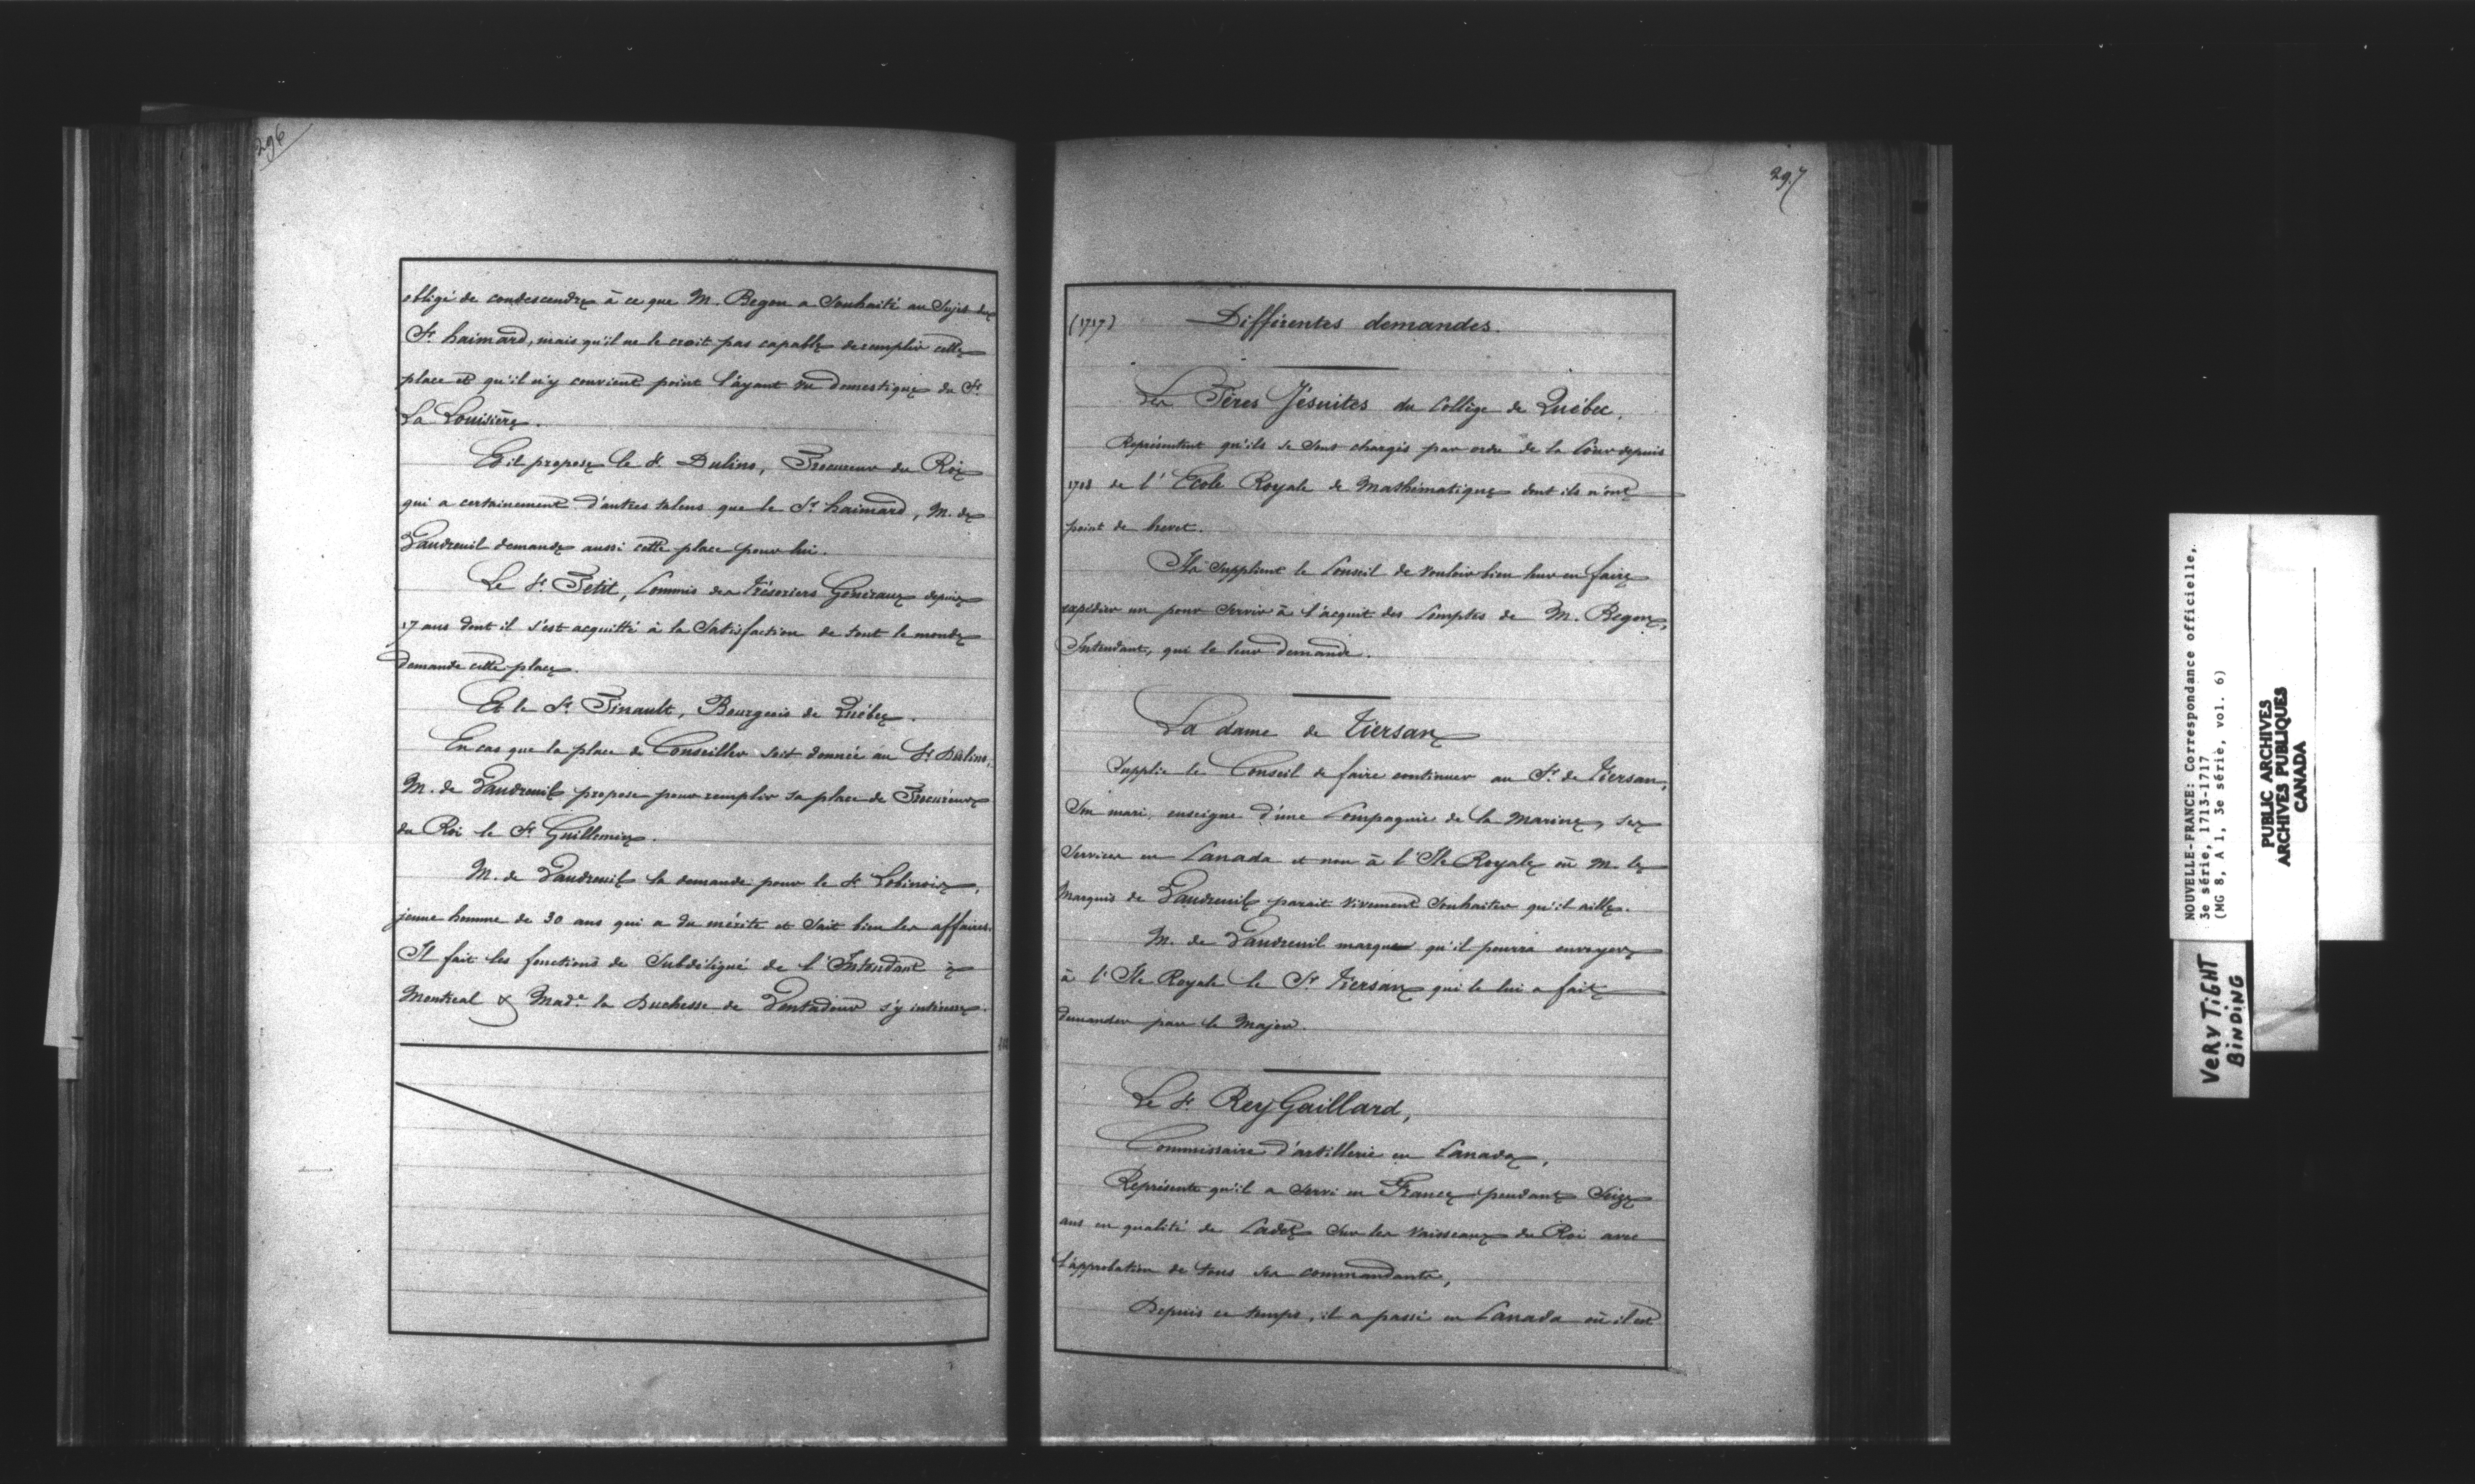 296
obligé de condescendre à ce que M. Begon a Souhaité au Sujet du
Sr. haimard, mais qu'il ne le croit pas capable de remplir cette
place et qu'il n'y convient point l'ayant vu domestique du Sr.
La Louisière.
Et il propose le Sr. Dulino, Procureur du Roi
qui a certainement d'autres talens que le Sr. haimard, M. de
Vaudreuil demande aussi cette place pour lui.
Le Sr. Petit, Commis des trésoriers Généraux depuis
17 ans dont il s'est acquitté à la Satisfaction de tout le monde
demande cette place.
Et le Sr. Pinault, Bourgeois de Québec.
En cas que la place de Conseiller soit donnée au Sr. Dulino,
M. de Vaudreuil propose pour remplir sa place de Procureur
du Roi le Sr. Guillemin.
M. de Vaudreuil la demande pour le Sr. Lobinois,
jeune homme de 30 ans qui a du mérite et Sait bien les affaires.
Il fait les fonctions de Subdélégué de l'Intendant à
Montreal & Made. la Duchesse de Ventadour s'y intéresse.
297
(1717) Différentes demandes.
Les Pères Jésuites du Collège de Québec,
Représentent qu'ils se sont chargés par ordre de la Cour depuis
1708 de l'Ecole Royale de Mathématique dont ils n'ont
point de brevet.
Ils Supplient le Conseil de vouloir bien leur en faire
expédier un pour Servir à l'acquit des Comptes de M. Begon,
Intendant, qui le leur demande.
La dame de Tiersan
Supplie le Conseil de faire continuer au Sr. de Tiersan,
Son mari, enseigne d'une Compagnie de la Marine, ses
Services en Canada et non à l'Ile Royale où M. le
Marquis de Vaudreuil parait vivement Souhaiter qu'il aille.
M. de Vaudreuil marque qu'il pourra envoyer
à l'Ile Royale le Sr. Tiersan qui le lui a fait
demander par le Major.
Le Sr. Rey Gaillard,
Commissaire d'artillerie en Canada,
Représente qu'il a Servi en France pendant Seize
ans en qualité de Cadet Sur les vaisseaux du Roi avec
l'approbation de tous ses commandants,
Depuis ce temps, il a passé en Canada où il est
NOUVELLE-FRANCE: Correspondance officielle,
3e série, 1713-1717
(MG 8, A 1, 3e série, vol. 6)
PUBLIC ARCHIVES
ARCHIVES PUBLIQUES
CANADA
VERY TIGHT
BINDING